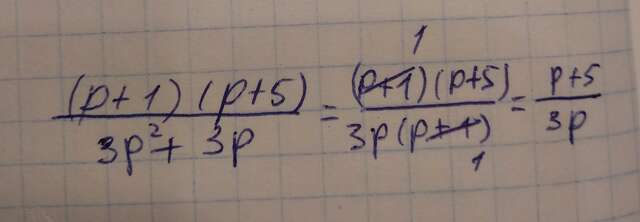 (p+1)(p+5)/(3p²+3p) = (p+1)(p+5)/(3p(p+1)) = (p+5)/(3p)
1
1